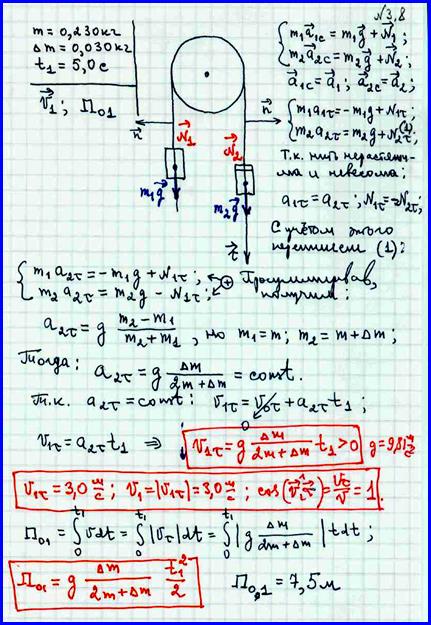 №3,8
m = 0,230кг
Δm = 0,030кг
t₁ = 5,0с
v⃗₁; П₀₁
{ m₁a⃗₁c = m₁g⃗ + N⃗₁;
m₂a⃗₂c = m₂g⃗ + N⃗₂;
a⃗₁c = a⃗₁; a⃗₂c = a⃗₂;
{ m₁a₁τ = -m₁g + N₁τ;
m₂a₂τ = m₂g + N₂τ; (1)
n⃗ n⃗
N⃗₁ N⃗₂
m₁g⃗ m₂g⃗
τ⃗
Т.к. нить нерастяжи-
ма и невесома:
a₁τ = a₂τ; N₁τ = -N₂τ;
С учётом этого
перепишем (1):
{ m₁a₂τ = -m₁g + N₁τ;
m₂a₂τ = m₂g - N₁τ; ⊕ Просуммировав,
получим:
a₂τ = g (m₂ - m₁)/(m₂ + m₁), но m₁ = m; m₂ = m + Δm;
Тогда: a₂τ = g Δm/(2m + Δm) = const.
Т.к. a₂τ = const: v₁τ = v₀τ + a₂τt₁;
0
v₁τ = a₂τt₁ ⇒ v₁τ = g Δm/(2m + Δm) t₁ > 0 g = 9,81 м/с
v₁τ = 3,0 м/с; v₁ = |v₁τ| = 3,0 м/с; cos(v⃗₁^τ⃗) = vτ/v = 1.
П₀₁ = ∫₀^t₁ vdt = ∫₀^t₁ |vτ|dt = ∫₀^t₁ |g Δm/(2m + Δm)| tdt;
П₀₁ = g Δm/(2m + Δm) t₁²/2 П₀,₁ = 7,5м